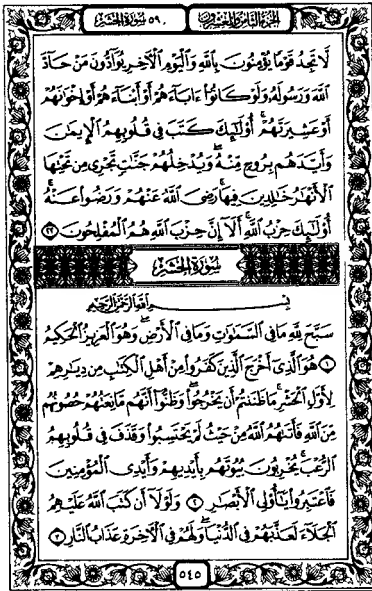 الجزء الثامن والعشرون
٥٩ سورة الحشر
لَّا تَجِدُ قَوْمًا يُؤْمِنُونَ بِاللَّهِ وَالْيَوْمِ الْآخِرِ يُوَادُّونَ مَنْ حَادَّ
اللَّهَ وَرَسُولَهُ وَلَوْ كَانُوا ءَابَاءَهُمْ أَوْ أَبْنَاءَهُمْ أَوْ إِخْوَانَهُمْ
أَوْ عَشِيرَتَهُمْ أُولَٰئِكَ كَتَبَ فِي قُلُوبِهِمُ الْإِيمَانَ
وَأَيَّدَهُم بِرُوحٍ مِّنْهُ وَيُدْخِلُهُمْ جَنَّاتٍ تَجْرِي مِن تَحْتِهَا
الْأَنْهَارُ خَالِدِينَ فِيهَا رَضِيَ اللَّهُ عَنْهُمْ وَرَضُوا عَنْهُ
أُولَٰئِكَ حِزْبُ اللَّهِ أَلَا إِنَّ حِزْبَ اللَّهِ هُمُ الْمُفْلِحُونَ ٢٢
سورة الحشر
بِسْمِ اللَّهِ الرَّحْمَٰنِ الرَّحِيمِ
سَبَّحَ لِلَّهِ مَا فِي السَّمَاوَاتِ وَمَا فِي الْأَرْضِ وَهُوَ الْعَزِيزُ الْحَكِيمُ
١ هُوَ الَّذِي أَخْرَجَ الَّذِينَ كَفَرُوا مِنْ أَهْلِ الْكِتَابِ مِن دِيَارِهِمْ
لِأَوَّلِ الْحَشْرِ مَا ظَنَنتُمْ أَن يَخْرُجُوا وَظَنُّوا أَنَّهُم مَّانِعَتُهُمْ حُصُونُهُم
مِّنَ اللَّهِ فَأَتَاهُمُ اللَّهُ مِنْ حَيْثُ لَمْ يَحْتَسِبُوا وَقَذَفَ فِي قُلُوبِهِمُ
الرُّعْبَ يُخْرِبُونَ بُيُوتَهُم بِأَيْدِيهِمْ وَأَيْدِي الْمُؤْمِنِينَ
فَاعْتَبِرُوا يَا أُولِي الْأَبْصَارِ ٢ وَلَوْلَا أَن كَتَبَ اللَّهُ عَلَيْهِمُ
الْجَلَاءَ لَعَذَّبَهُمْ فِي الدُّنْيَا وَلَهُمْ فِي الْآخِرَةِ عَذَابُ النَّارِ ٣
٥٤٥